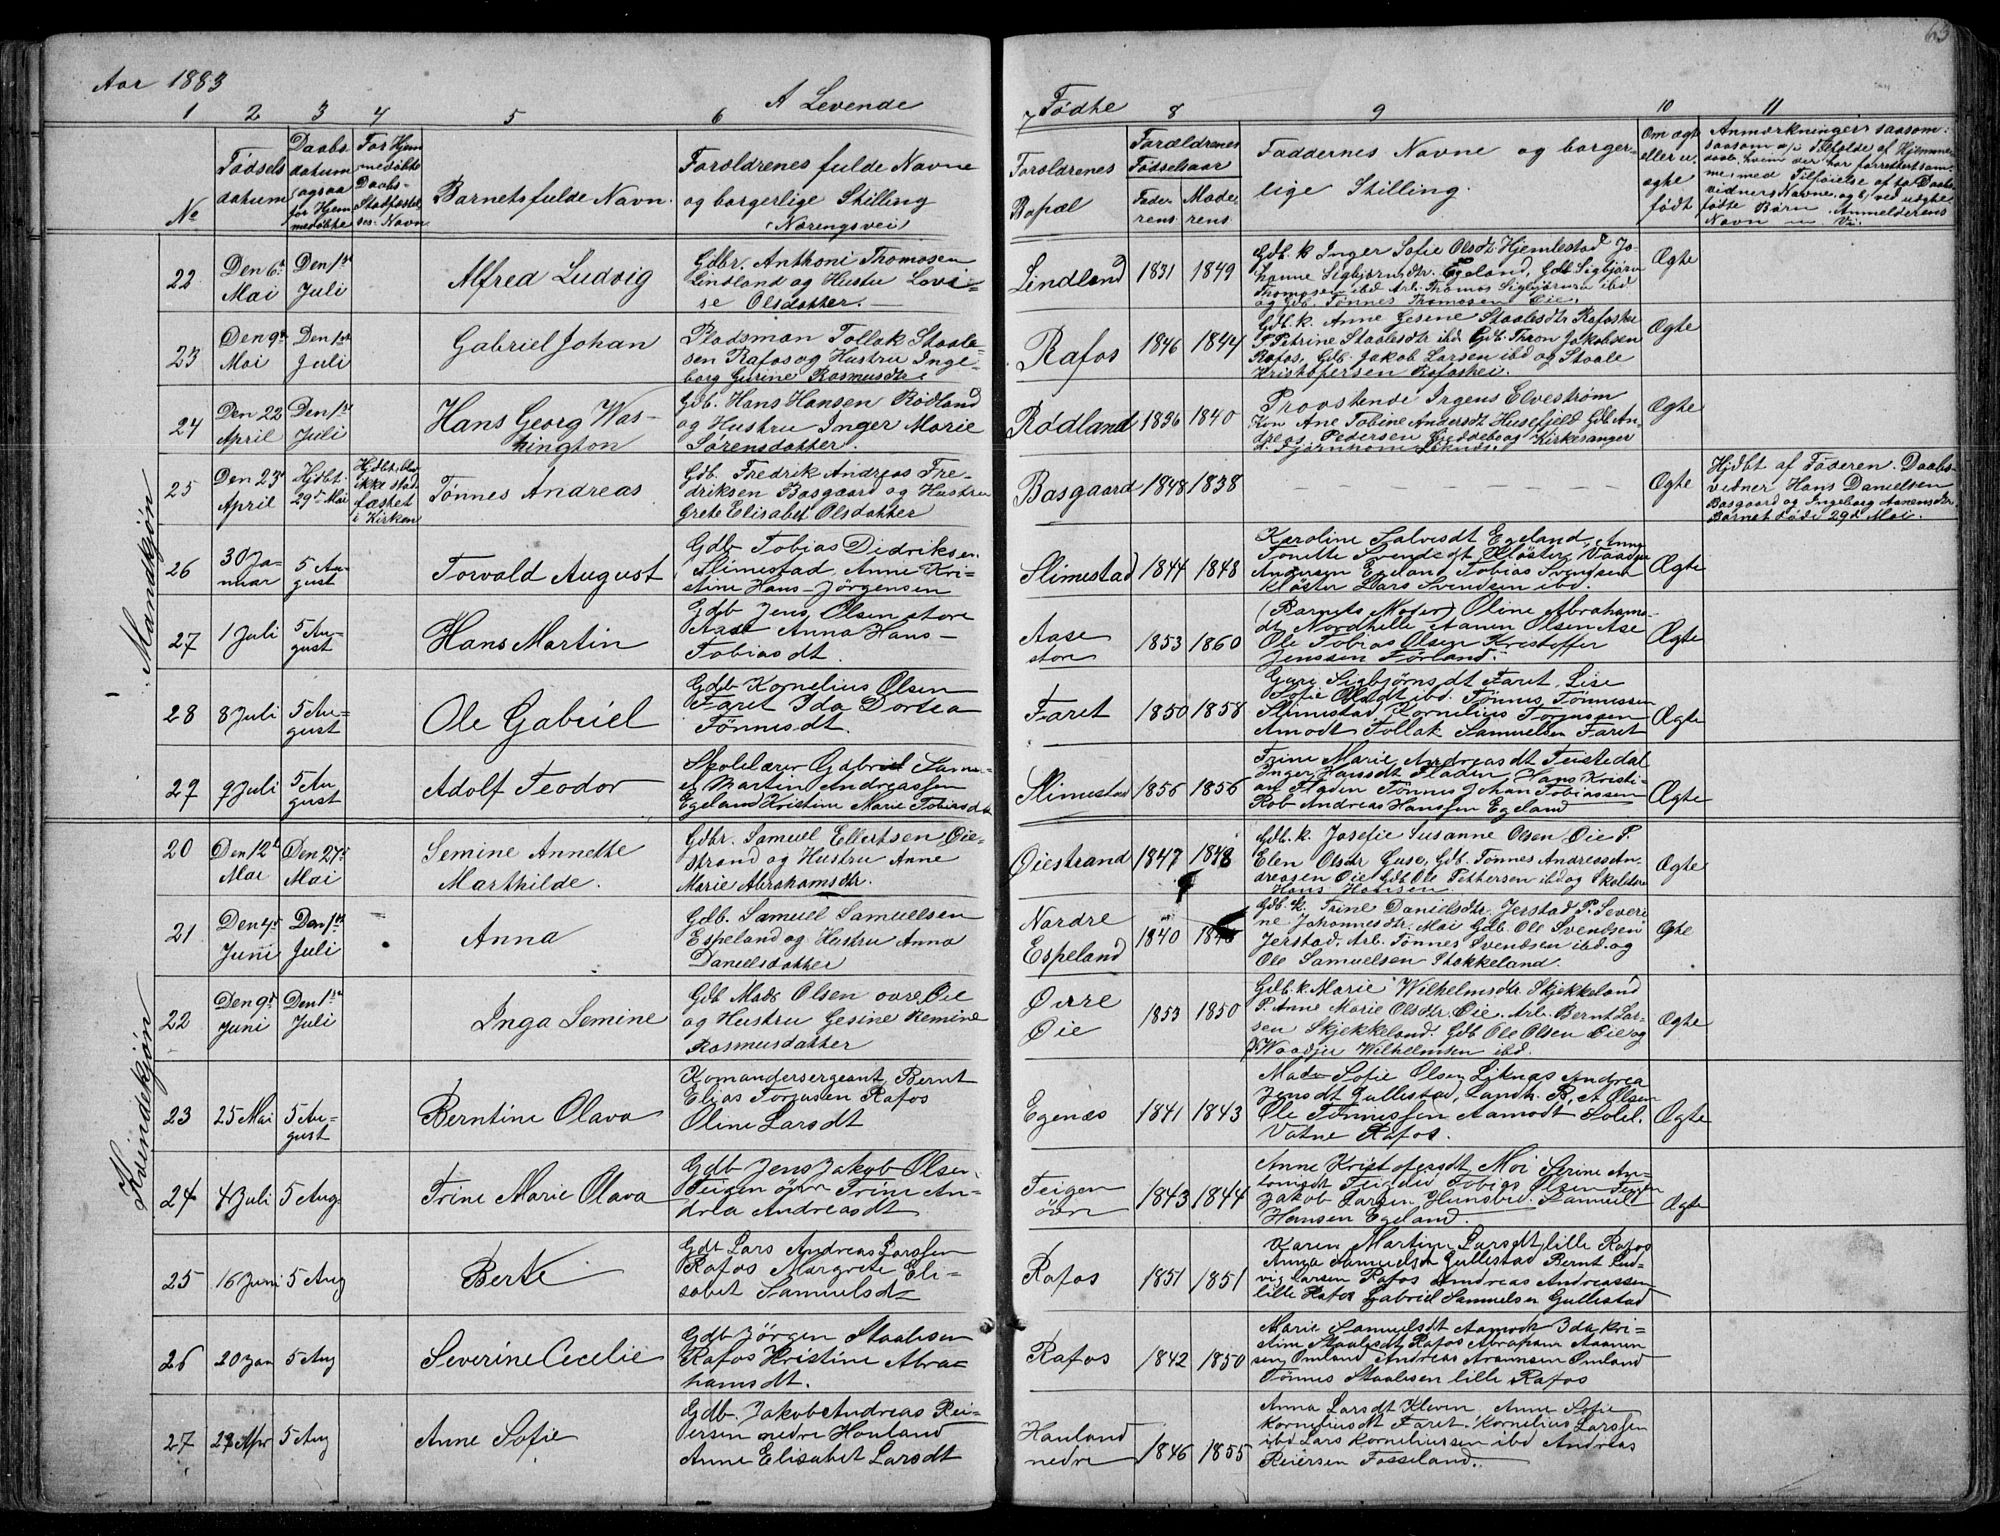 63
Aar 1883
A Levende
Fødte
1 2 3 4 5 6 7 8 9 10 11
No
Fødsels datum
Daabs datum (ogsaa for Hjemmedøbte
For Hjemmedøbte Daabs- Stadfæstelses Navn
Barnets fulde Navn
Foroldrenes fulde Navne
og borgerlige Stilling
(Næringsvei)
Foroldrenes
Bopæl
Foroldrenes
Fødselsaar
Fader rens
Moderens
Faddernes Navne og borger-
lige Stilling
Om ægte eller uægte født
Anmærkninger saasom:
Mandkjøn
22 Den 6t Mai Den 1ste Juli
Alfred Ludvig
Gdbr. Anthoni Thomosen
Lindland og Hustru Lovi-
se Olsdatter.
Lindland 1831 1849
Gdb. k Inger Sofie Olsdt. Hjemlestad Jo-
hanne Sigbjørnsdtr. Egeland, Gdb Sigbjørn
Thomosen ibd Arb. Thomas Sigbjørnsen ibd
og Gdb. Tønnes Thomosen Øie.
Ægte
23 Den 9de Mai Den 1ste Juli
Gabriel Johan
Pladsman Tollak Staale-
sen Rafos og Hustru Inge-
borg Gurine Rasmusdtr
Rafos 1846 1844
Gdb. k. Anne Gesene Staalesdtr Rafoshei
P. Petrine Staalesdtr ibd Gdb. Thron Jakobsen
Rafos, Gdb Jakob Larsen ibd og Staale
Kristofersen Rafoshei.
Ægte
24 Den 22 April Den 1ste Juli
Hans Georg Was-
hington
Gdb. Hans Hansen Rødland
og Hustru Inger Marie
Sørensdatter.
Rødland 1836 1840
Provstende Irgens Elvestrøm
Kon Ane Tobine Andersdt Husefjeld Gdb An-
dreas Pedersen Geddeberg Kirkesanger
Ægte
25 Den 23d April Hjdbt. 29d Mai
Hjdbt, blev ikke stadfæstet i Kirken
Tønnes Andreas
Gdb. Fredrik Andreas Fre-
driksen Basgaard og Hustru
Grete Elisabet Olsdatter
Basgaard 1848 1838
Ægte
Hjdbt af Faderen. Daabs-
vidner Hans Danielsen
Basgaard og Ingeborg Aanensdtr
Barnet døde 29d Mai.
26 30 Januar 5 August
Torvald August
Gdb Tobias Didriksen
Slimestad, Anne Kri-
stine Hans-Jørgensen
Slimestad 1844 1848
Karoline Salvesdt Egeland, Anne
Tonette Svendsdt Kløster,
Andersen Egeland Tobias Svendsen
Kløster Lars Svendsen ibd.
Ægte
27 1 Juli 5 August
Hans Martin
Gdb Jens Olsen store
Aase Anna Hans-
Tobiasdt.
Aase store 1853 1860
(Barnets Moder) Oline Abrahams-
dt Nordhelle Aanen Olsen Ase
Ole Tobias Olsen Kristoffer
Jenssen Førland.
Ægte
28 8 Juli 5 August
Ole Gabriel
Gdb Kornelius Olsen
Faret Ida Dortea
Tönnesdt.
Faret 1850 1858
Guri Sigbjørnsdt Faret, Lise
Sofie Olsdt ibd. Tønnes Tønnessen
Slimestad Kornelius Torjussen
Amodt Tollak Samuelsen Faret
Ægte
29 9 Juli 5 August
Adolf Teodor
Skolelærer Gabriel Samu-
el Martin Andreassen
Egeland Kristine Marie Tobiasdt
Slimestad 1856 1856
Trine Marie Andreasdt Feistedal
Inger Hansdt Fladen, Hans Kristi-
an Fladen Tönnes Johan Tobiassen
Rob Andreas Hanssen Egeland
Ægte
Kvindekjøn
20 Den 12t Mai Den 27d Mai
Semine Annette
Marthilde.
Gdbr. Samuel Ellertsen Øie-
strand og Hustru Anne
Marie Abrahamsdtr.
Øiestrand 1847 1848
Gdb. k. Josefie Susanne Olsen Øie P.
Elen Olsdtr Guse, Gdb. Tønnes Andreas An-
dreasen Øie Gdb Ole Pettersen ibd og Skolelærer
Hans Hansen
Ægte
21 Den 4d Juni Den 1ste Juli
Anna
Gdb. Samuel Samuelsen
Espeland og Hustru Anna
Danielsdatter
Nordre Espeland 1840 1846
Gdb. k. Trine Danielsdtr. Jerstad P. Severi
ne Johannesdtr. Moi Gdb Ole Svendsen
Jerstad. Arb. Tønnes Svendsen ibd. og
Ole Samuelsen Stokkeland.
Ægte
22 Den 9d Juni Den 1ste Juli
Inga Semine
Gdb Mads Olsen øvre Øie
og Hustru Gesine Remine
Rasmusdatter
Øvre Øie 1853 1850
Gdb. k. Marie Wilhelmsdtr. Skjekkeland
P. Anne Marie Olsdtr. Øie. Arb. Bernt Lar-
sen Skjekkeland. Gdb Ole Olsen Øie og
Waadjer Wilhelmsen ibd.
Ægte
23 25 Mai 5 August
Berntine Olava
Komandersergeant Bernt
Elias Torjusen Rafos
Oline Larsdt
Egenæs 1841 1843
Mad. Sofie Olsen Liknas Andrea
Jensdt Gullestad, Landh. B. A Olsen
Ole Tönnessen Aamodt,
Vatne Rafos.
Ægte
24 4 Juli 5 Aug.
Trine Marie Olava
Gdb Jens Jakob Olsen
Teigen övr Trine An-
drea Andreasdt
Teigen övr 1843 1844
Anne Kristofersdt Moi Serine An-
tonisdt Teigen Tobias Olsen Teigen
Jakob Larsen Hunsbed. Samuel
Hansen Egeland.
Ægte
25 16 Juni 5 Aug
Berte
Gdb Lars Andreas Larssen
Rafos Margrete Eli-
sabet Samuelsdt
Rafos 1851 1851
Karen Martine Larsdt lille Rafos
Anna Samuelsdt Gullestad Bernt Lud-
vig Larsen Rafos Andreas Andreassen
lille Rafos Gabriel Samuelsen Gullestad
26 20 Jan 5 Aug
Severine Cecelie
Gdb Jörgen Staalesen
Rafos Kristine Abra-
hamsdt.
Rafos 1842 1850
Marie Samuelsdt Aamodt Ida Kri-
stine Staalesdt Rafos Abraham Aanen-
sen Omland Andreas Aanensen Omland
Tönnes Staalesen lille Rafos
27 27 Apr 5 Aug
Anne Sofie
Gdb. Jakob Andreas Rei-
ersen nedre Houland
Anne Elisabet Larsdt
Houland nedre 1846 1855
Anna Larsdt Kleven Anne Sofie
Korneliusdt Faret. Kornelius Larssen
ibd Lars Korneliussen ibd Andreas
Reiersen Fosseland.